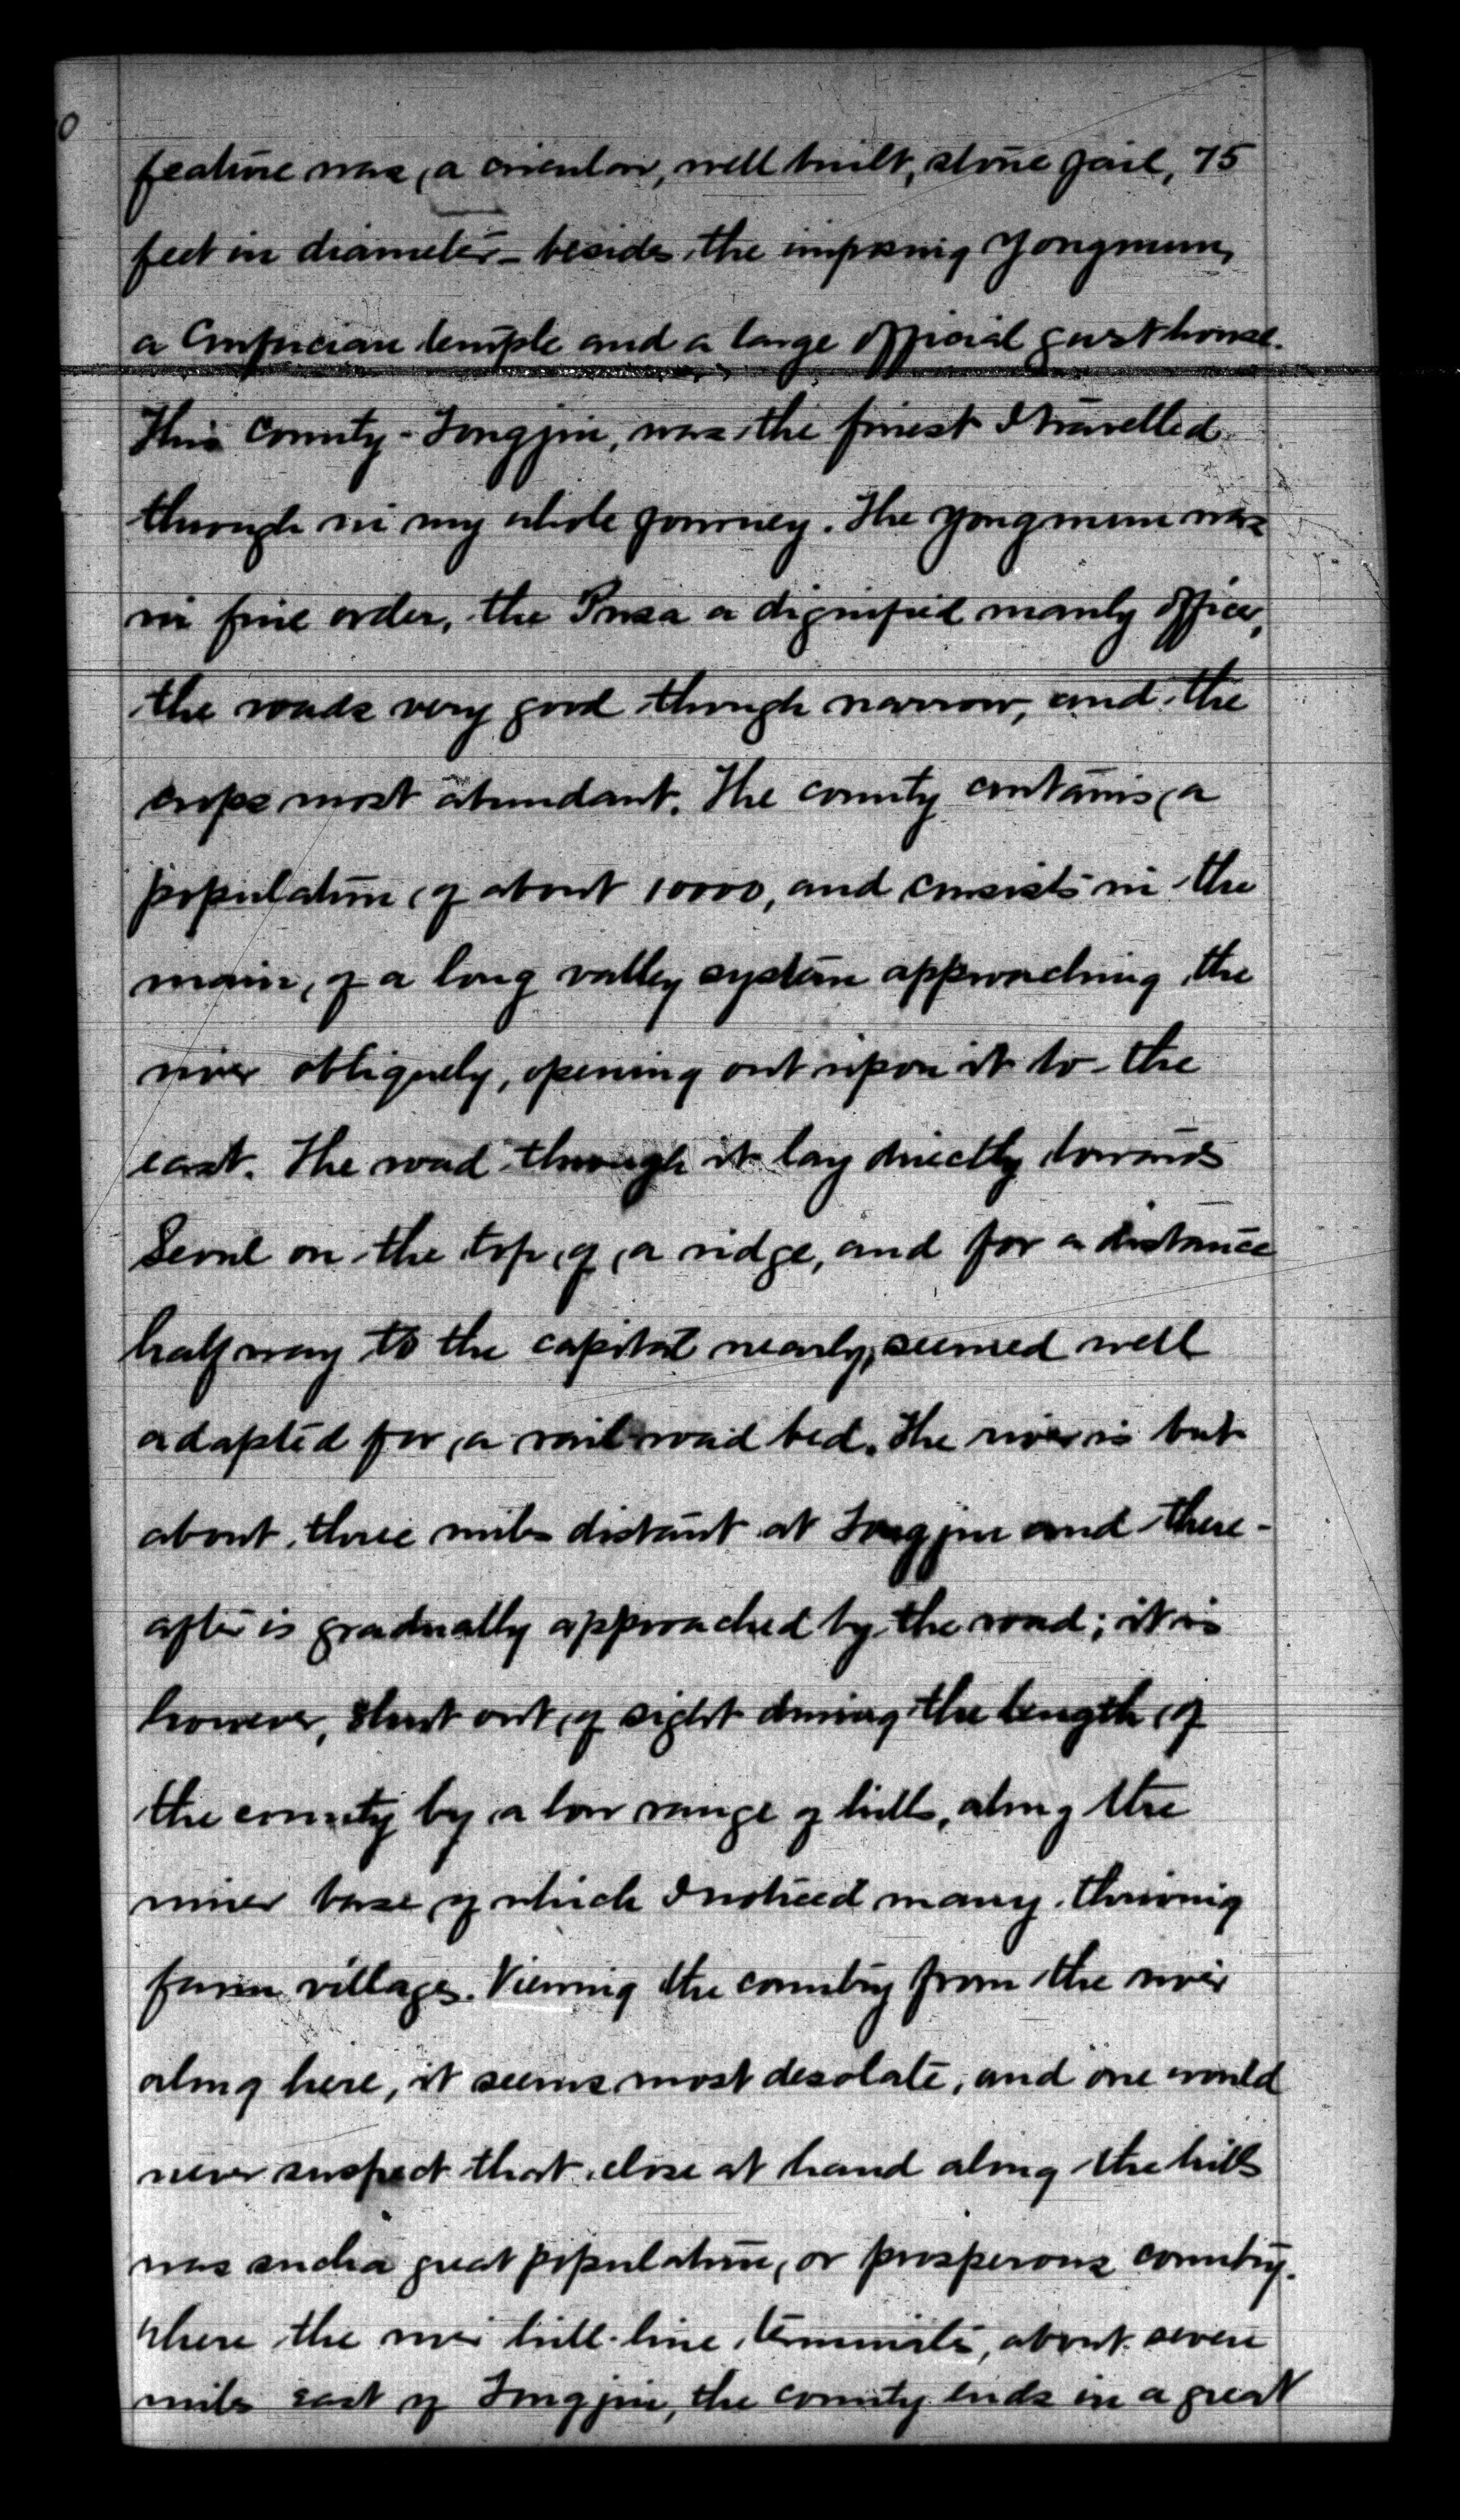 feature was, a circular, well built, stone jail, 75
feet in diameter - beside the imposing Yongmun,
a Confucian temple and a large official guest house.
This county - Tongjin, was the finest I travelled
through in my whole journey. The yongmun was
in fine order, the Pusa a dignified manly officer,
the roads very good though narrow, and the
crops most abundant. The county contains a
population of about 10000, and consists in the
main, of a long valley system approaching the
river obliquely, opening out upon it to the
east. The road through it lay directly towards
Seoul on the top of a ridge, and for a distance
half way to the capital nearly, seemed well
adapted for a rail road bed. The river is but
about three miles distant at Tongjin and there-
after is gradually approached by the road; it is
however, shut out of sight during the length of
the county by a low range of hills, along the
inner base of which I noticed many thriving
farm villages. Viewing the country from the river
along here, it seems most desolate, and one would
never suspect that close at hand along the hills
was such a great population, or prosperous country.
Where the river hill-line terminates, about seven
miles east of Tongjin, the county ends in a great